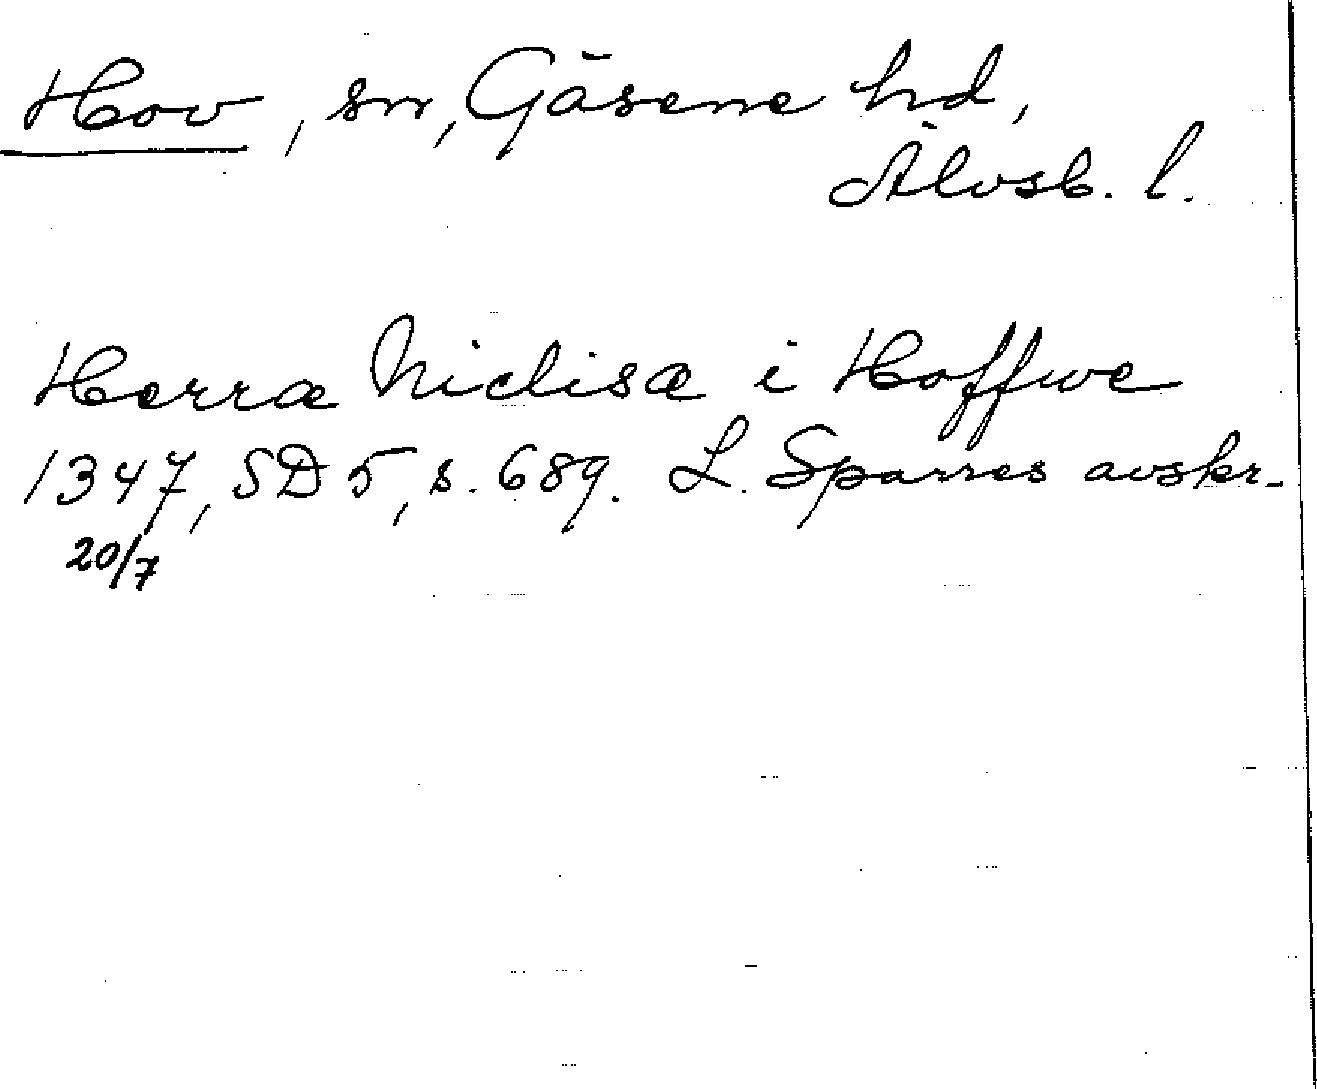 Hov, sn, Gäsene hd,
Älvsb. l.
Herra Niclisa i Hoffwe
1347, SD 5, s. 689. L. Sparres avskr.
20/7